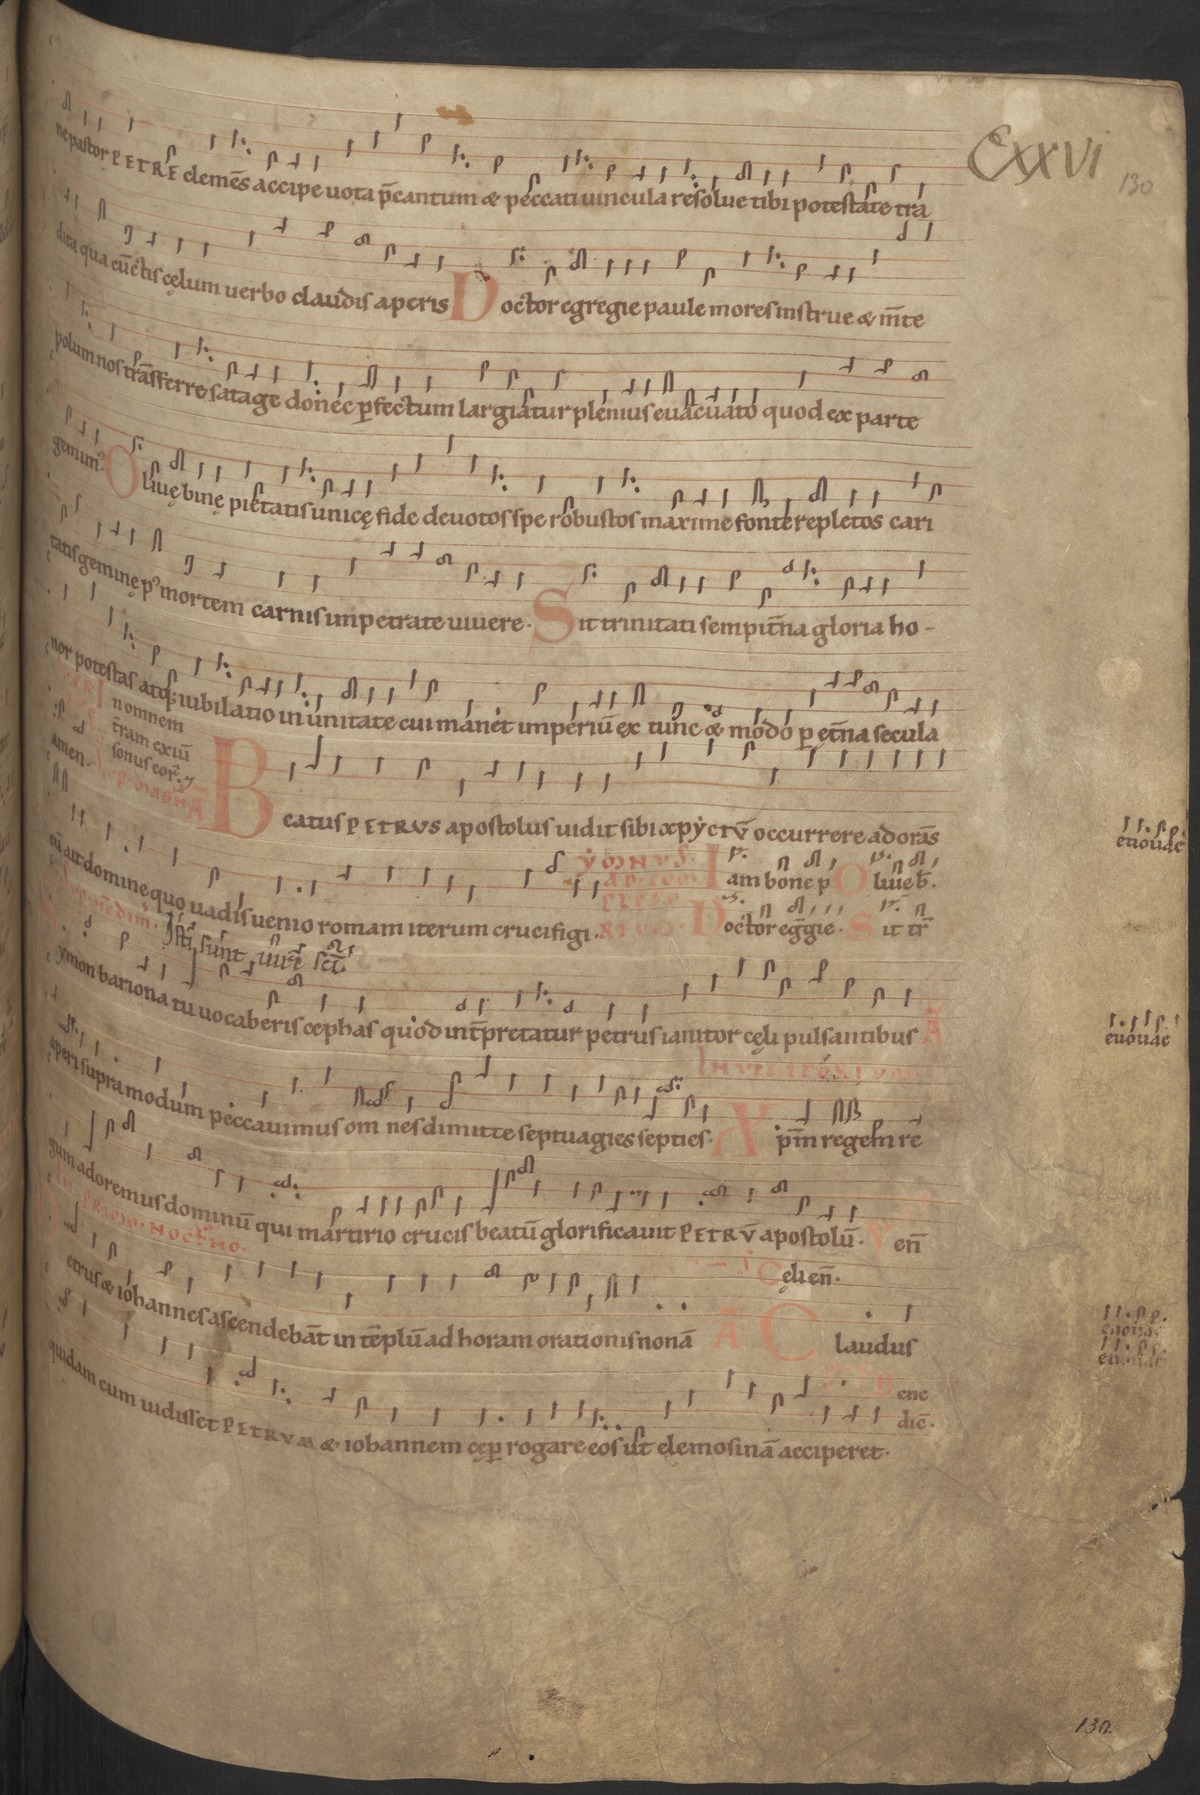 CXXVI
130
ne pastor PETRE clemēs accipe uota p̄cantum & peccati uincula resolue tibi potestate tra
dita qua cūctis cęlum uerbo claudis aperis Doctor egregie paule mores instrue & m̄te
polum nos trāsferre satage donec ꝑfectum largiatur plenius euacuato quod ex parte
gerimꝰ Oliuę binę pietatis unicę fide deuotos spe robustos maxime fonte repletos cari
tatis geminę pꝰ mortem carnis impetrate uiuere. Sit trinitati sempit̄na gloria ho-
nor potestas atq; iubilatio in unitate cui manet imperiū ex tunc & modo ꝑ et̄na secula
amen.
In omnem
t̄ram exiū
sonus eor̄.
Beatus PETRVS apostolus uidit sibi xpȳ ctū occurrere adorās
euouae
eū ait domine quo uadis uenio romam iterum crucifigi.
YMNVS. Iam bone p Oliue b̄.
Doctor eḡgie. Sit tr̄
Isti sunt uiri sc̄i
Symon bariona tu uocaberis cephas quod int̄pretatur petrus ianitor cęli pulsantibus Ā
euouae
INVITATORIVM.
aperi supra modum peccauimus om nes dimitte septuagies septies. Xp̄m regem re
gum adoremus dominū qui martirio crucis beatū glorificauit PETRV̄ apostolū. Ven̄
IN PRIMO. NOCT̄NO.
Cęli en̄.
Petrus & iohannes ascendebāt in tēplū ad horam orationis nonā Ā Claudus
euouae
euouae
Bene
dic̄.
quidam cum uidisset PETRVM & iohannem cęꝑ rogare eos ut elemosinā acciperet.
130.